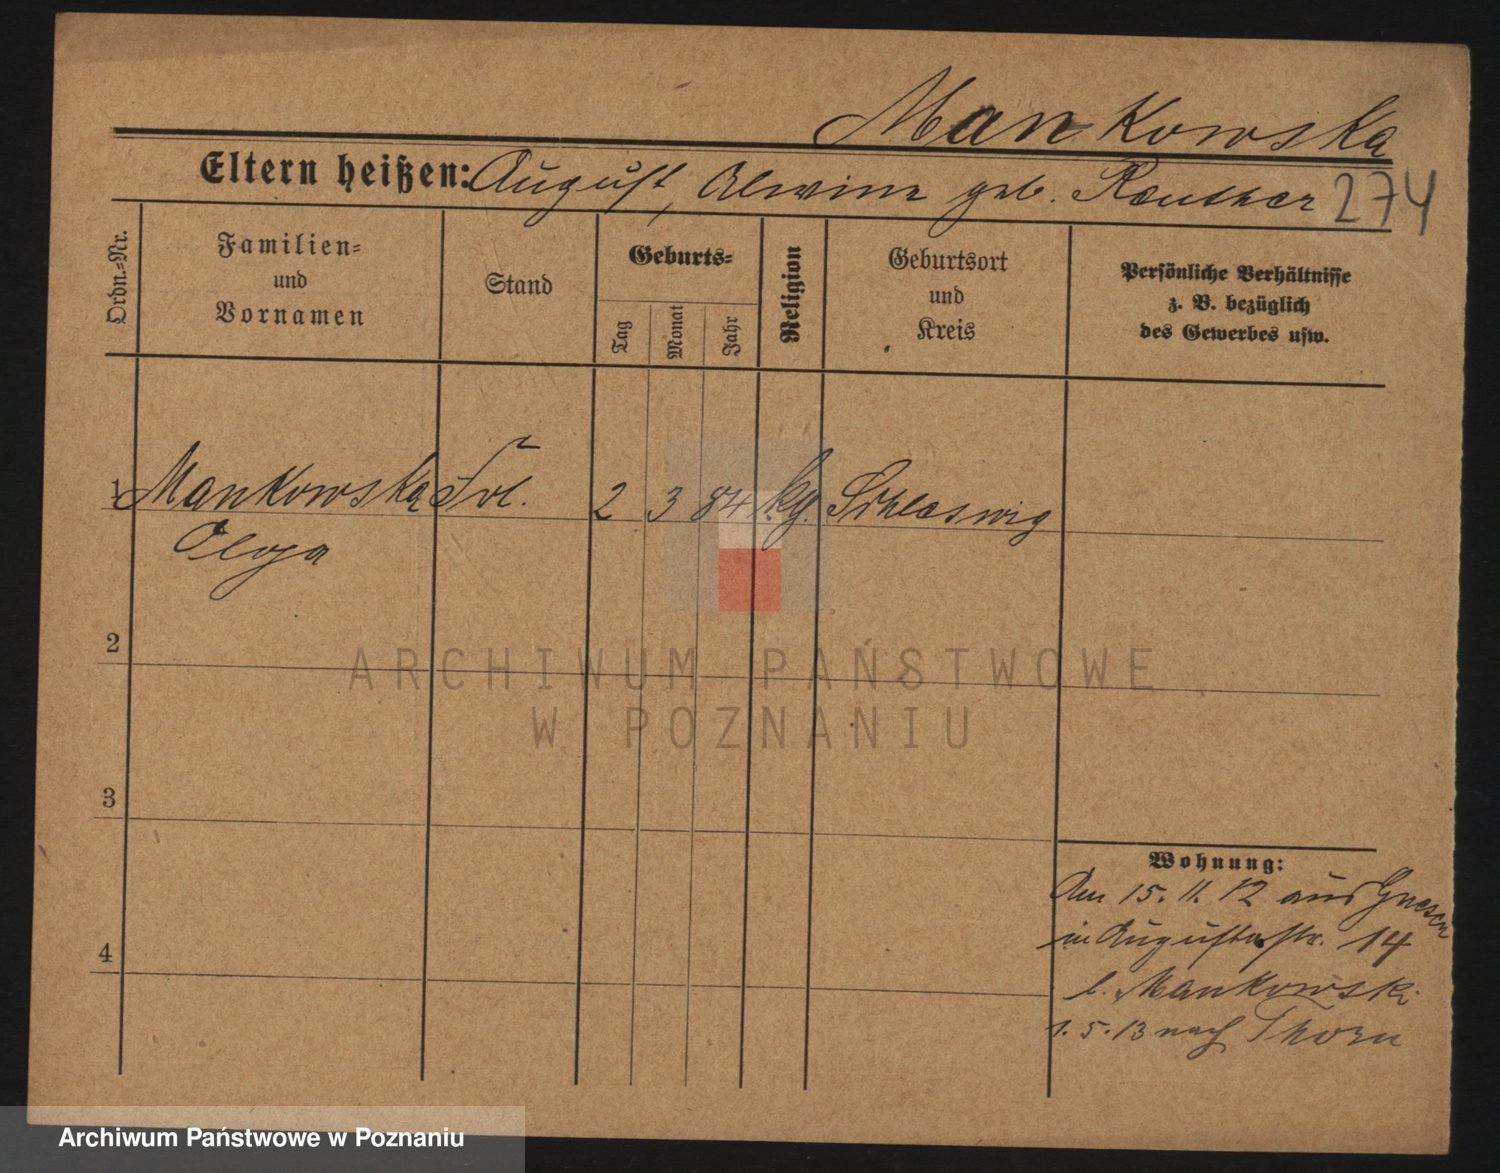 Mankowska
Eltern heißen: August, Alwine geb. Reuther 274
Ordn.=Nr.
Familien=
und
Vornamen
Stand
Geburts=
Tag
Monat
Jahr
Religion
Geburtsort
und
Kreis
Persönliche Verhältnisse
z. B. bezüglich
des Gewerbes usw.
1 Mankowska Frl. 2 3 84 kg. Schleswig
Olga
2
3
4
Wohnung:
Am 15. 11. 12 aus Gnesen
in Augustastr. 14
b. Mankowski
1. 5. 13 nach Thorn
ARCHIWUM PAŃSTWOWE
W POZNANIU
Archiwum Państwowe w Poznaniu